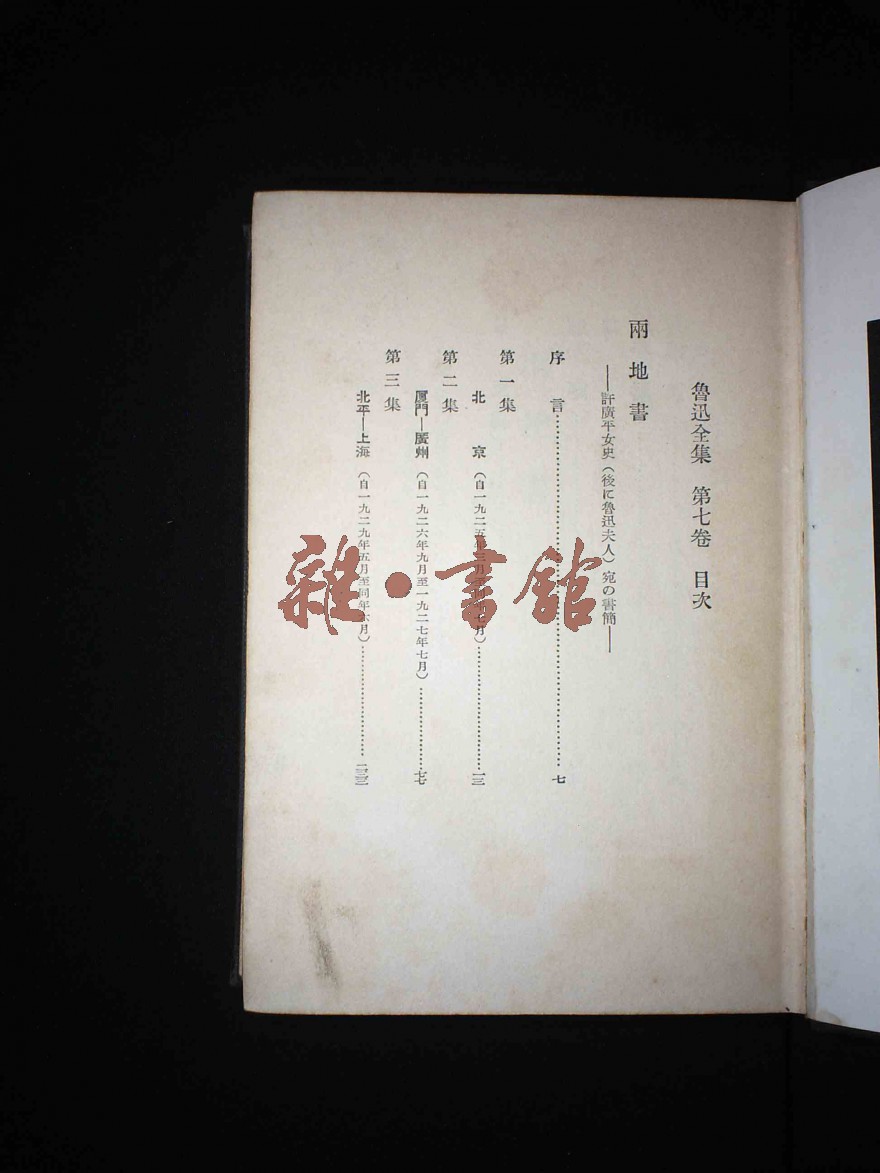 魯迅全集 第七卷 目次
兩地書
——許廣平女史(後に魯迅夫人)宛の書簡——
序言……七
第一集
北京(自一九二五年三月至同年七月)……一三
第二集
厦門—廣州(自一九二六年九月至一九二七年七月)……七七
第三集
北平—上海(自一九二九年五月至同年六月)……
雜·書館